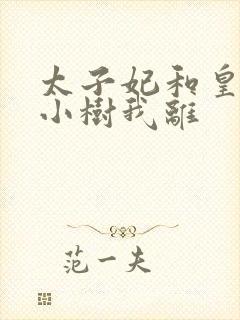 太子妃和皇
小樹我離
范一夫